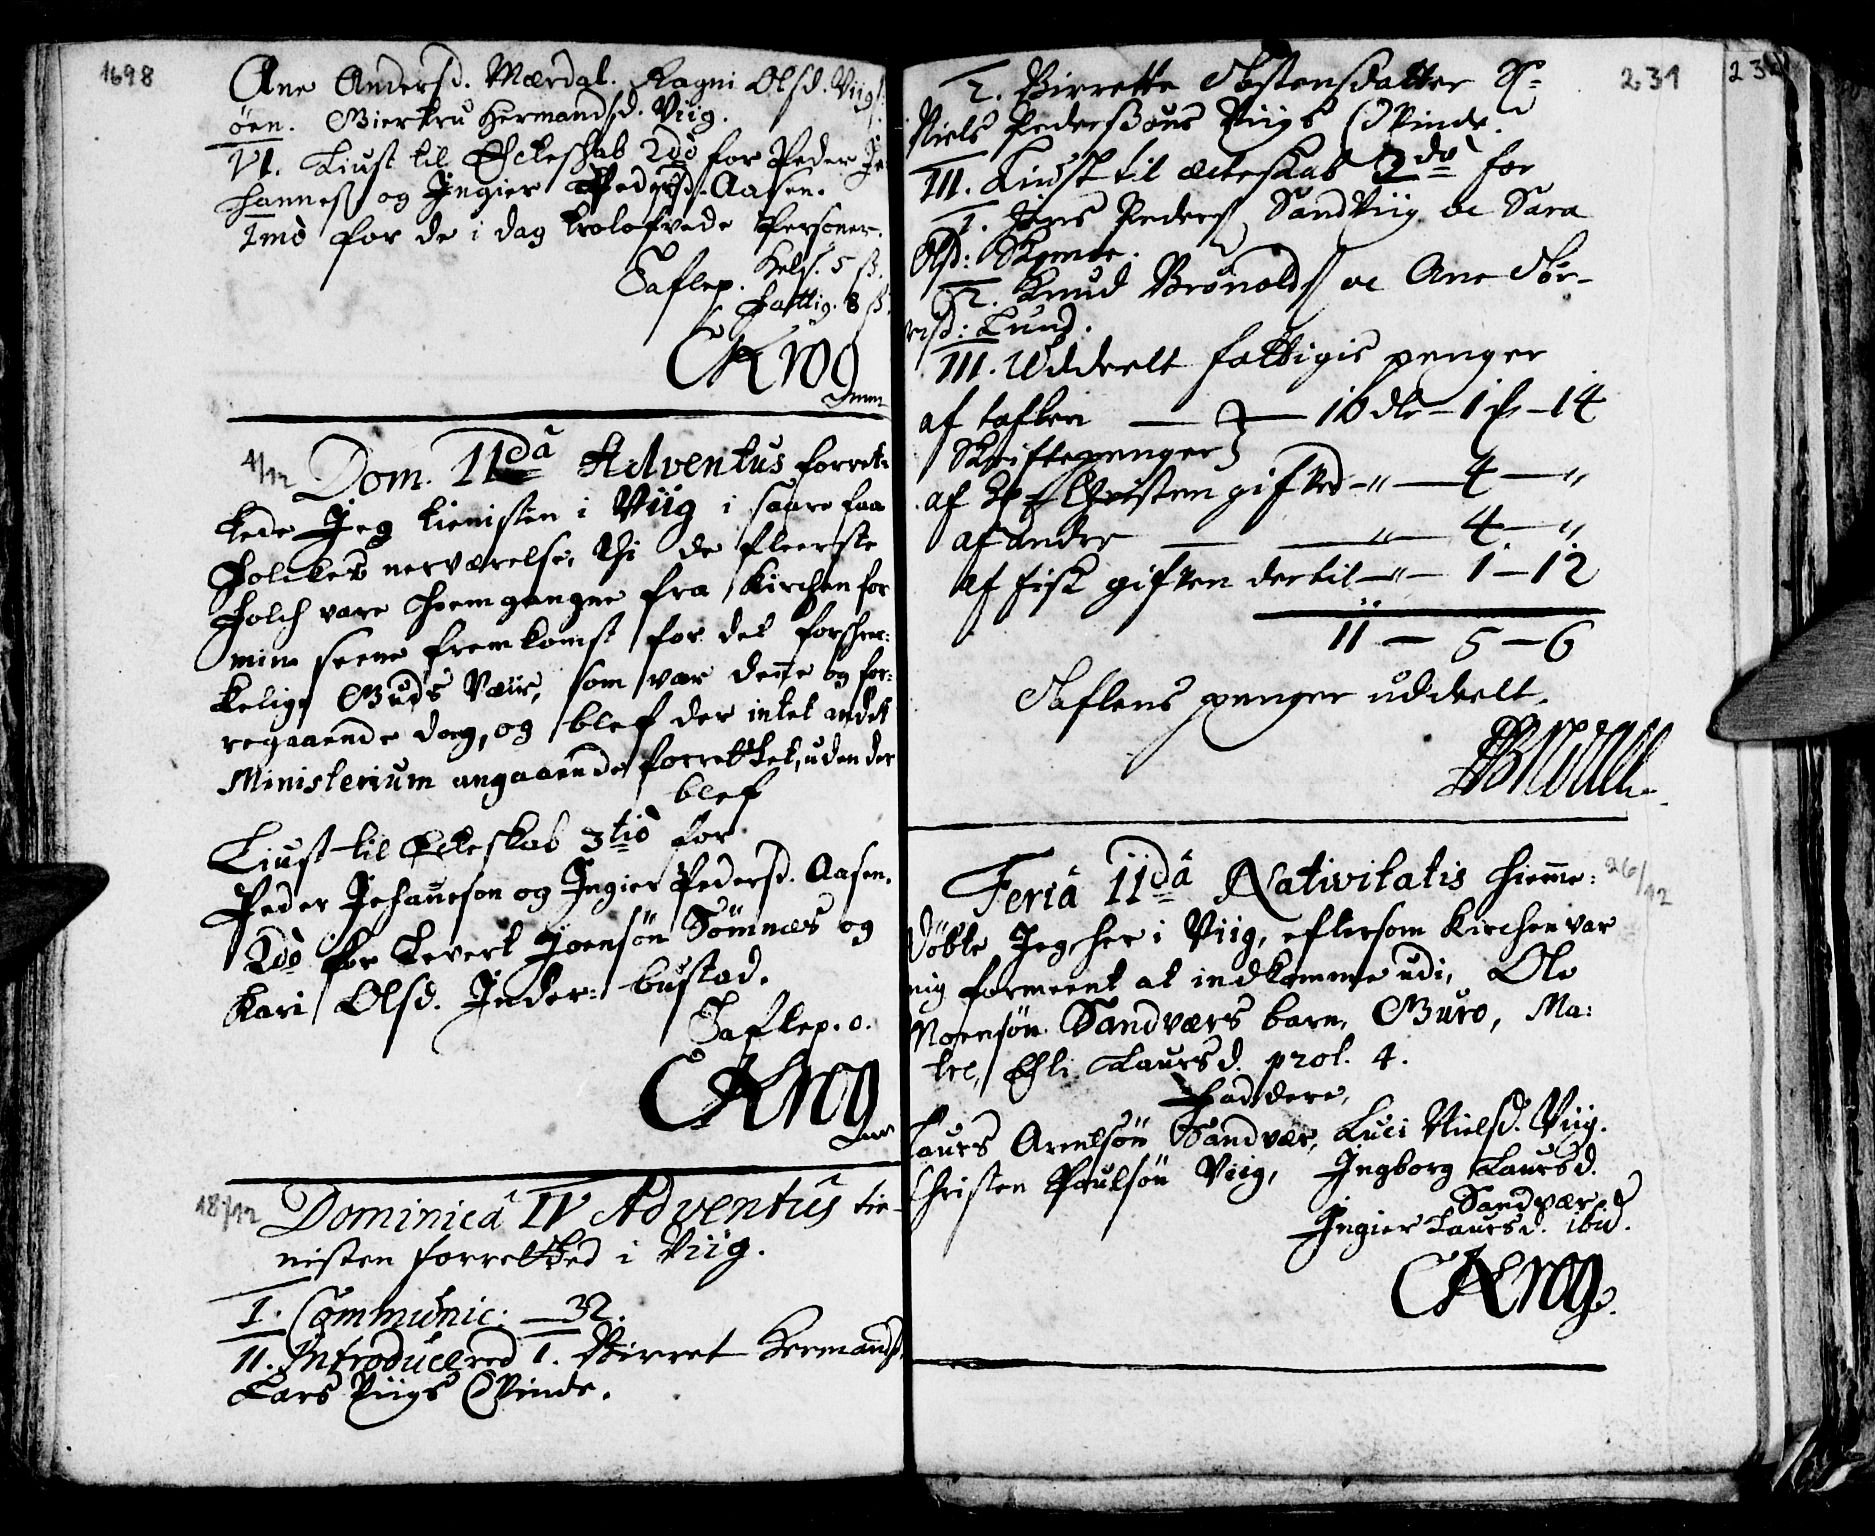 1698
Ane Andersd. Mærdal. Ragni Olsd. Viigs:
öen. Giertru Hermandsd. Viig.
VI. Liust til Ecteskab 2dò for Peder Je
hanness og Ingier Pedersd. Aasen.
1mò for de i dag trolofvede Personer.
Taflep. Kels. 5 ß.
Fattig. 8 ß.
CKrog
4/12 Dom. IIdâ Adventus forret:
tede Jeg tienisten i Viig i saare faa
Folckes nerværelse, thi de fleerste
Folch vare hiemgangne fra Kirchen for
min seene fremkomst for det forschrec:
kelige Guds Væir, som var dene og for:
regaaende dag, og blef der intet andet
Ministerium angaaende forrettet, uden der
blef
Liust til Ecteskab 3tiò for
Peder Jehaneson og Ingier Pedersd. Aasen.
2dò for Severt Joensön Sömnes og
Kari Olsd. Inder: bustad.
Taflep. 0.
CKrog
18/12 Dominicâ IV Adventûs tie-
nisten forretted i Viig.
I. Communic: 32.
II. Introducered 1. Birret Hermands
Lars Viigs Qvinde.
231
2. Birrette Tostensdatter S:
Niels Pedersøns Viigs Qvinde.
III. Liust til ecteskab 2do for
1. Jens Peders Sandviig oc Sara
Olsd: Skomoe.
2. Knud Brönolds oc Ane Sör-
rensd: Lund.
III. Uddeelt fattigis penger
af taflen — 10 dlr - 1 - 14
Skriftepenger
af Hr Christen gifved - " - 4 - "
af andre — " - 4 - "
af fisk giften dertil - " - 1 - 12
11 - 5 - 6
Taflens penger uddeelt.
Feriâ IIdâ Nativitatis hieme: 26/12
döbte Jeg her i Viig, eftersom Kirchen var
mig formeent at indkomme udi, Ole
Moensön Sandværs barn, Guro, Ma:
ter, Eli Laursd. prol. 4.
Faddere,
Laurs Arnesön Sandvær, Luci Nielsd. Viig.
Christen Poulsön Viig, Ingborg Laursd.
Sandvær
Ingier Laursd. ibid.
CKrog.